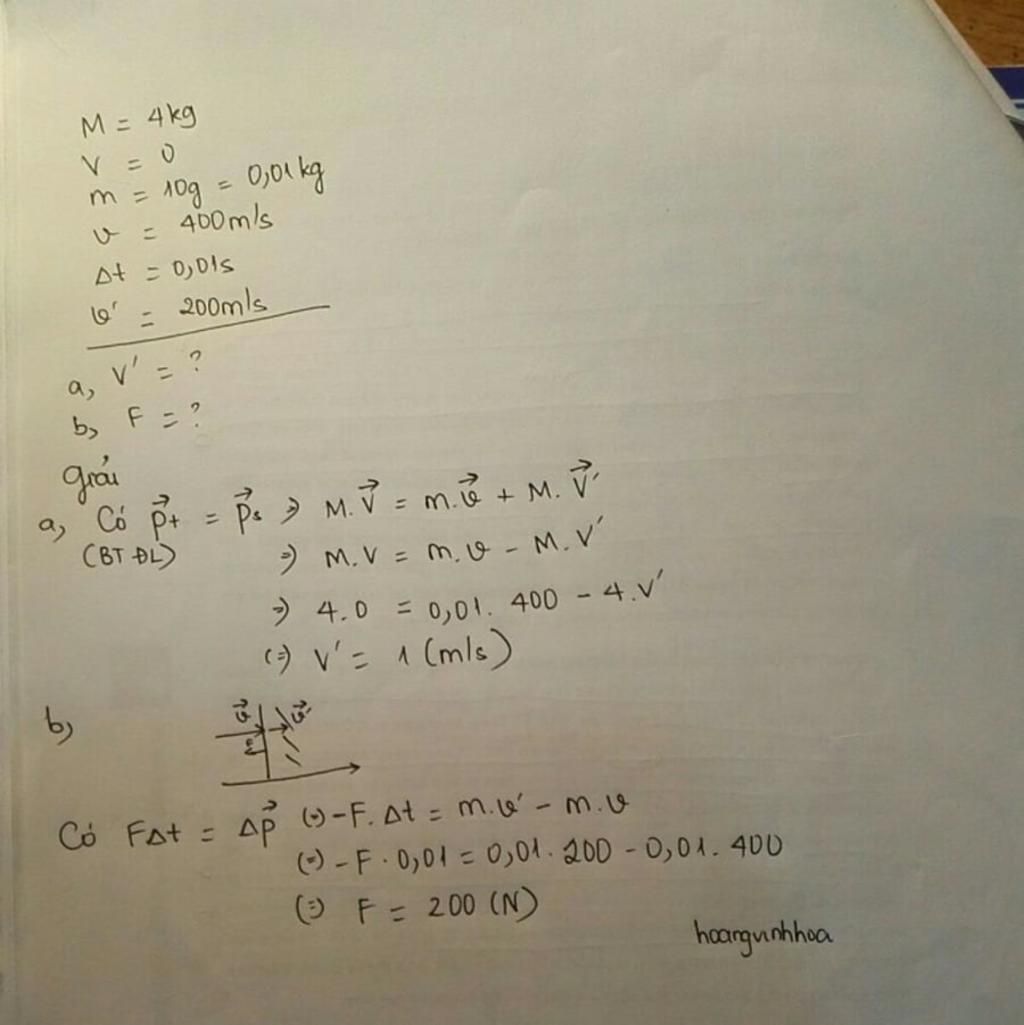 M = 4kg
V = 0
m = 10g = 0,01kg
v = 400m/s
Δt = 0,01s
v' = 200m/s
a, V' = ?
b, F = ?
Giải
a, Có p⃗t = p⃗s ⇒ M.V⃗ = m.v⃗ + M.V⃗'
(BT ĐL) ⇒ M.V = m.v - M.V'
⇒ 4.0 = 0,01. 400 - 4.V'
(=) V' = 1 (m/s)
b,
v⃗ v⃗'
Có FΔt = Δp⃗ (=) -F.Δt = m.v' - m.v
(=) -F.0,01 = 0,01.200 - 0,01.400
(=) F = 200 (N)
hoangvinhhoa